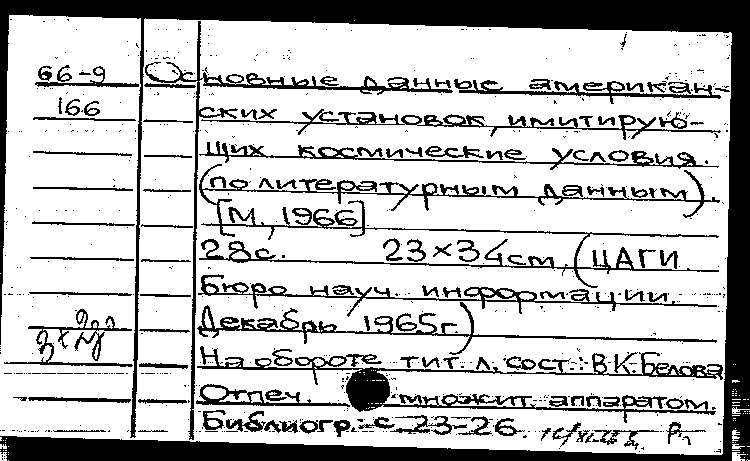 66-9 Основные данные американ-
166 ских установок, имитирую-
щих космические условия.
(по литературным данным).
[М., 1966]
28с. 23×34см. (ЦАГИ.
Бюро науч. информации.
Декабрь 1965г.)
На обороте тит. л. сост.: В.К.Белова
Отпеч. множит. аппаратом.
Библиогр.: с. 23-26.